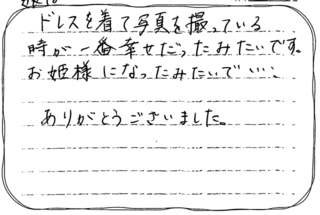 ドレスを着て写真を撮っている
時が一番幸せだったみたいです。
お姫様になったみたいで…
ありがとうございました。